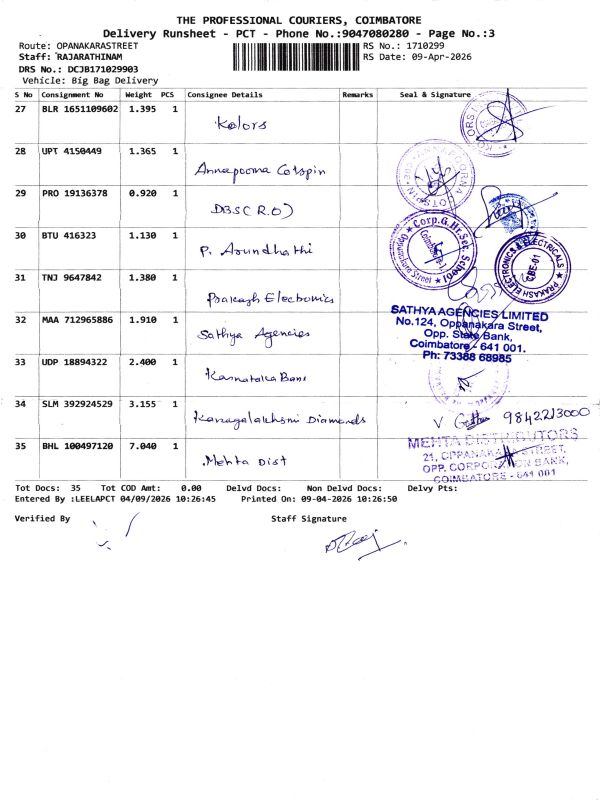 THE PROFESSIONAL COURIERS, COIMBATORE
Delivery Runsheet - PCT - Phone No.:9047080280 - Page No.:3
Route: OPANAKARASTREET RS No.: 1710299
Staff: RAJARATHINAM RS Date: 09-Apr-2026
DRS No.: DCJB171029903
Vehicle: Big Bag Delivery
S No Consignment No Weight PCS Consignee Details Remarks Seal & Signature
27 BLR 1651109602 1.395 1 Kolors
28 UPT 4150449 1.365 1 Annapoorna Cotspin
29 PRO 19136378 0.920 1 DBS(R.O)
30 BTU 416323 1.130 1 P. Arundhathi
Corp.G.Hr.Sec. School
Coimbatore-1
31 TNJ 9647842 1.380 1 Prakash Electronics
PRAKASH ELECTRONICS & ELECTRICALS
CBE-01
32 MAA 712965886 1.910 1 Sathya Agencies
SATHYA AGENCIES LIMITED
No.124, Oppanakara Street,
Opp. State Bank,
Coimbatore - 641 001.
Ph: 73388 68985
33 UDP 18894322 2.400 1 Karnataka Bank
34 SLM 392924529 3.155 1 Kanagalakshmi Diamonds
9842213000
35 BHL 100497120 7.040 1 Mehta Dist
MEHTA DISTRIBUTORS
21, OPPANAKARA STREET,
OPP. CORPORATION BANK,
COIMBATORE - 641 001
Tot Docs: 35 Tot COD Amt: 0.00 Delvd Docs: Non Delvd Docs: Delvy Pts:
Entered By :LEELAPCT 04/09/2026 10:26:45 Printed On: 09-04-2026 10:26:50
Verified By Staff Signature